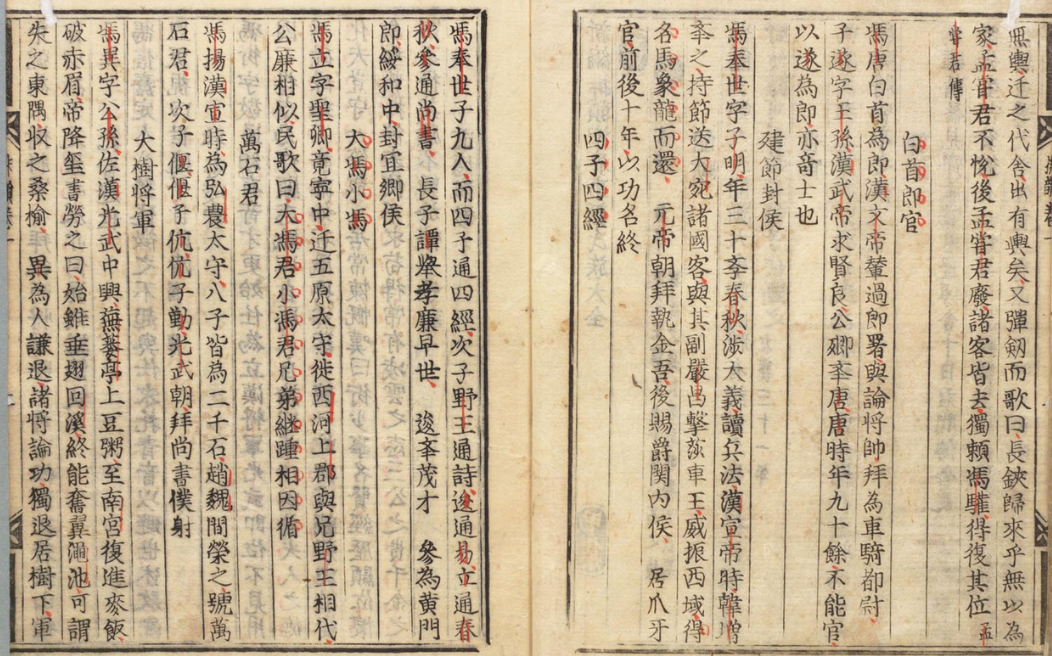 煕輿遷之代舎出有輿矣又彈剱而歌曰長鋏歸來乎無以為
家孟甞君不恱後孟甞君廢諸客皆去獨頼馮驩得復其位孟
甞君傳
白首郎官
馮唐白首為郎漢文帝輦過郎署與論將帥拜為車騎都尉
子遂字王孫漢武帝求賢良公卿㪯唐唐時年九十餘不能官
以遂為郎亦竒士也
建節封侯
馮奉世字子明年三十㪯春秋渉大義讀兵法漢宣帝時韓增
㪯之持節送大宛諸國客與其副嚴昌擊莎車王威振西域得
名馬象龍而還元帝朝拜執金吾後賜爵関内侯居爪牙
官前後十年以功名終
四子四經
馮奉世子九人而四子通四經次子野王通詩逡通易立通春
秋參通尚書長子譚㪯孝廉早世逡㪯茂才參為黄門
郎綏和中封宜郷侯
大馮小馮
馮立字聖卿竟寧中迁五原太守徙西河上郡與兄野王相代
公廉相似民歌曰大馮君小馮君兄弟継踵相因循
萬石君
馮揚漢宣時為弘農太守八子皆為二千石趙魏間榮之號萬
石君次子偃偃子伉伉子勤光武朝拜尚書僕射
大樹将軍
馮異字公孫佐漢光武中興蕪蔞亭上豆粥至南宮復進麥飯
破赤眉帝降璽書勞之曰始雖垂翅回溪終能奮翼澠池可謂
失之東隅収之桑榆異為人謙退諸將論功獨退居樹下軍